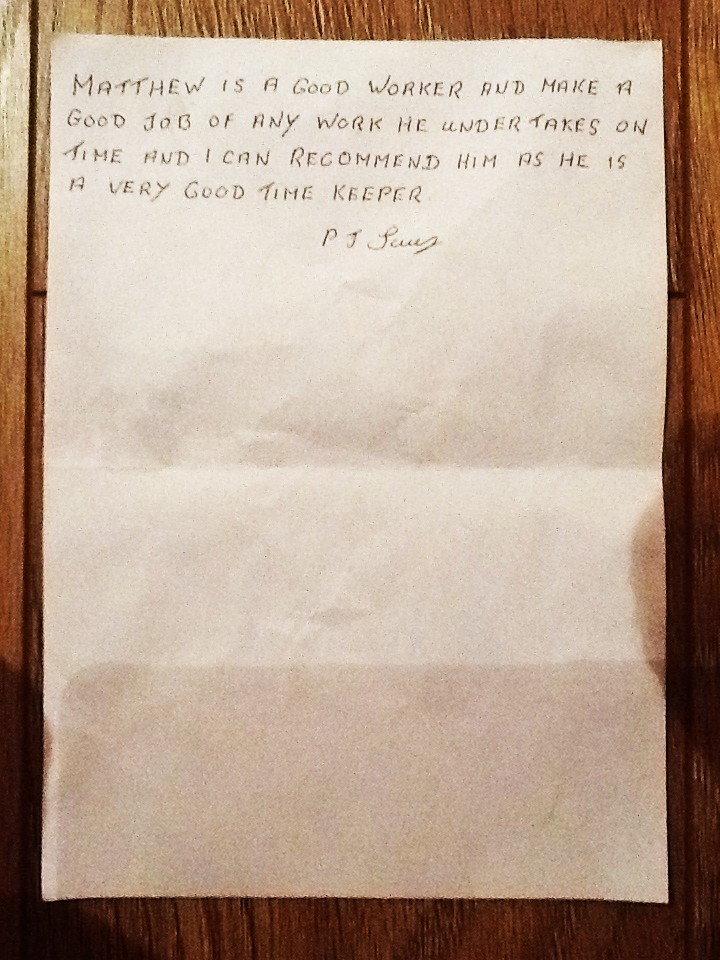 MATTHEW IS A GOOD WORKER AND MAKE A
GOOD JOB OF ANY WORK HE UNDERTAKES ON
TIME AND I CAN RECOMMEND HIM AS HE IS
A VERY GOOD TIME KEEPER
P J